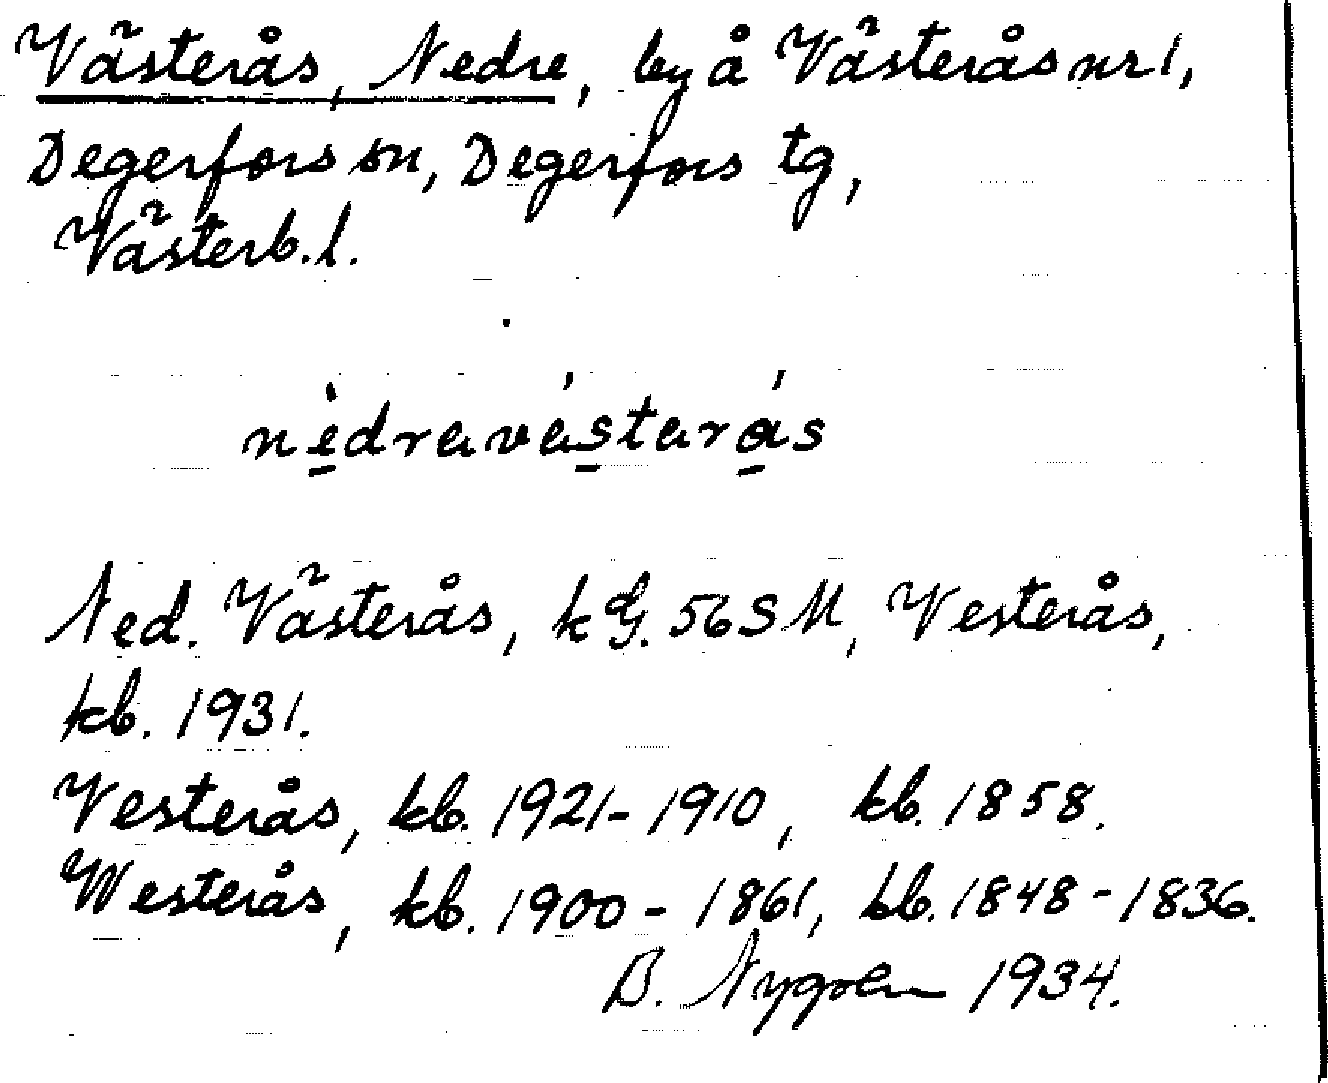 Västerås, Nedre, by å Västerås nr 1,
Degerfors sn, Degerfors tg,
Västerb. l.
nèdravástarás
Ned. Västerås, k G. 56 S M, Vesterås,
kb. 1931.
Vesterås, kb. 1921-1910, kb. 1858.
Westerås, kb. 1900-1861, kb. 1848-1836.
B. Nygren 1934.